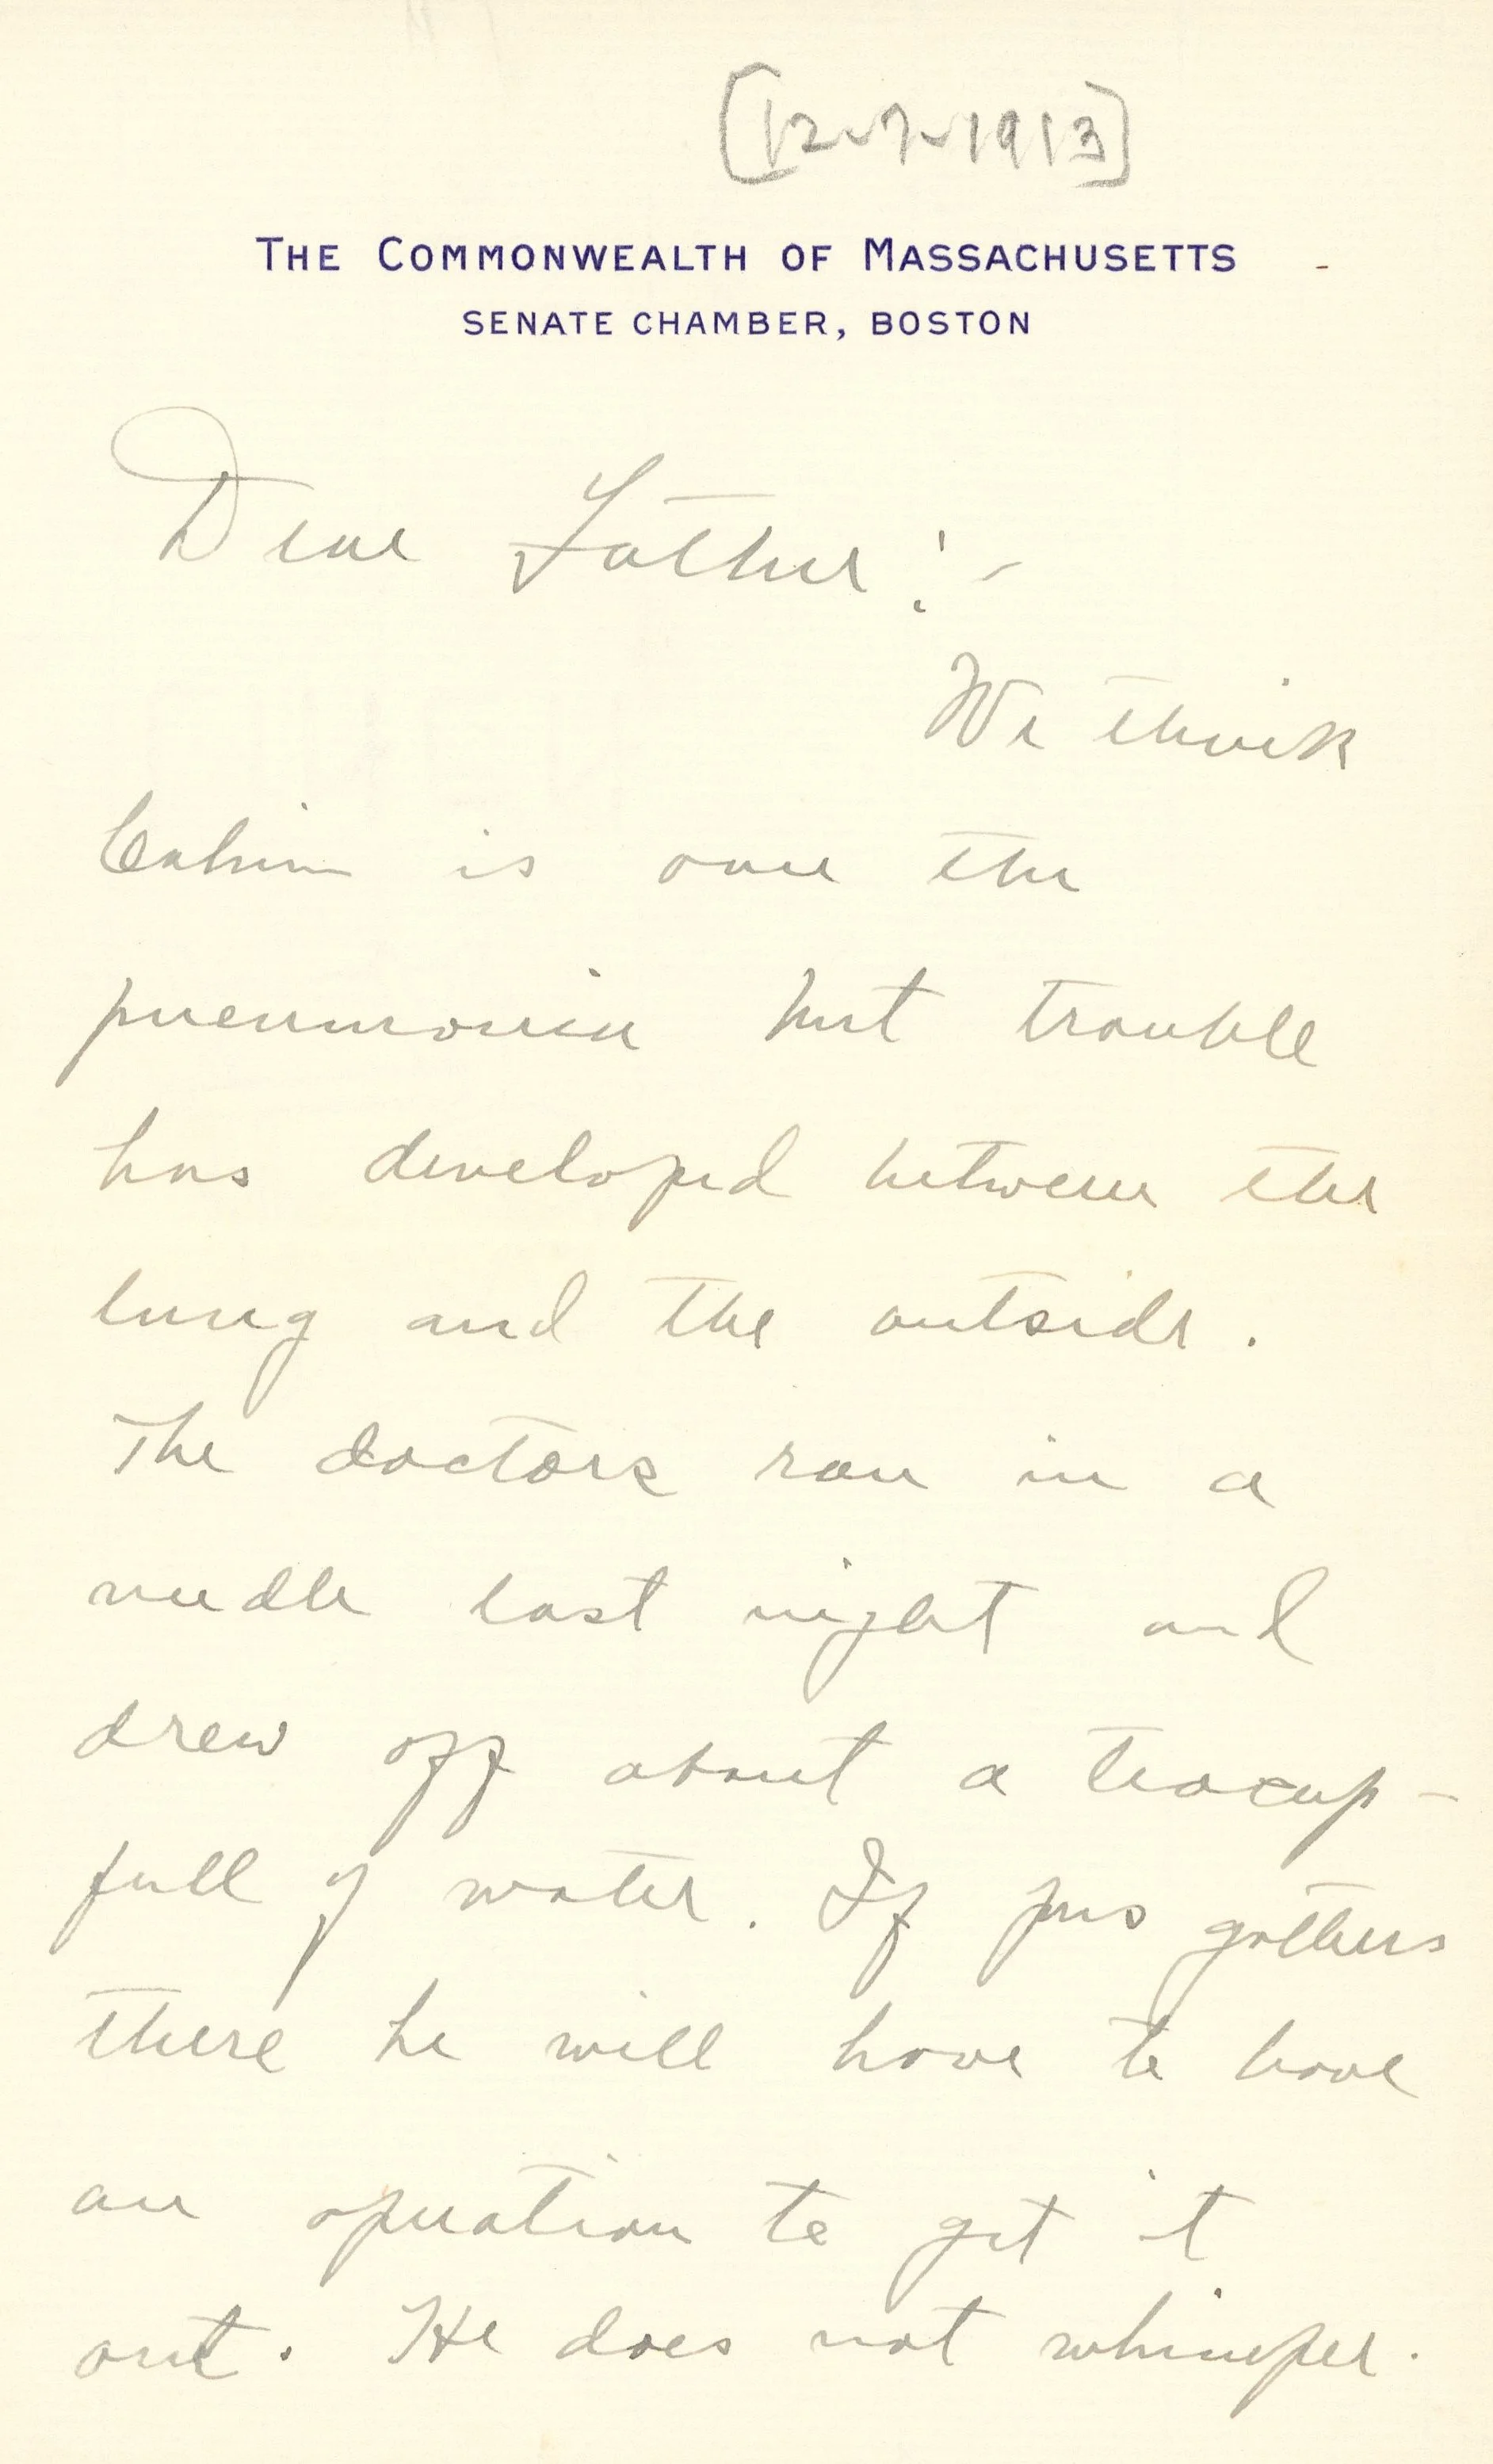 [12-7-1913]
THE COMMONWEALTH OF MASSACHUSETTS
SENATE CHAMBER, BOSTON
Dear Father:-
We think
Calvin is over the
pneumonia but trouble
has developed between the
lung and the outside.
The doctors ran in a
needle last night and
drew off about a teacup-
full of water. If pus gathers
there he will have to have
an operation to get it
out. He does not whimper.